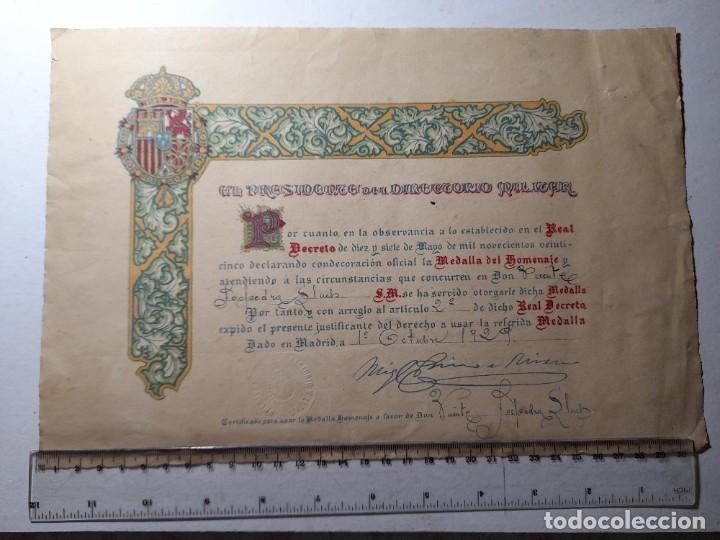 EL PRESIDENTE DEL DIRECTORIO MILITAR
Por cuanto, en la observancia a lo establecido en el Real
Decreto de diez y siete de Mayo de mil novecientos veinti-
cinco declarando condecoración oficial la Medalla del Homenaje y
atendiendo á las circunstancias que concurren en Don Vicente
S.M. se ha servido otorgarle dicha Medalla
Por tanto, y con arreglo al artículo 2º de dicho Real Decreto,
expido el presente justificante del derecho a usar la referida Medalla
Dado en Madrid, a 1º Octubre 1925.
Certificado para usar la Medalla Homenaje a favor de Don Vicente
INCH
12 11 10 9 8 7 6 5 4 3 2 1
todocoleccion
todocoleccion.net